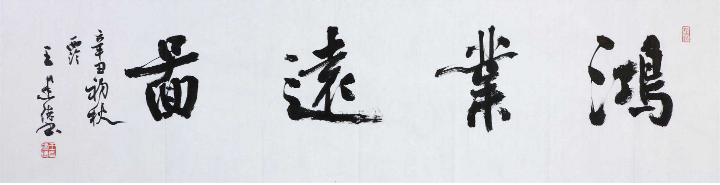 鴻業遠圖
辛丑初秋
王